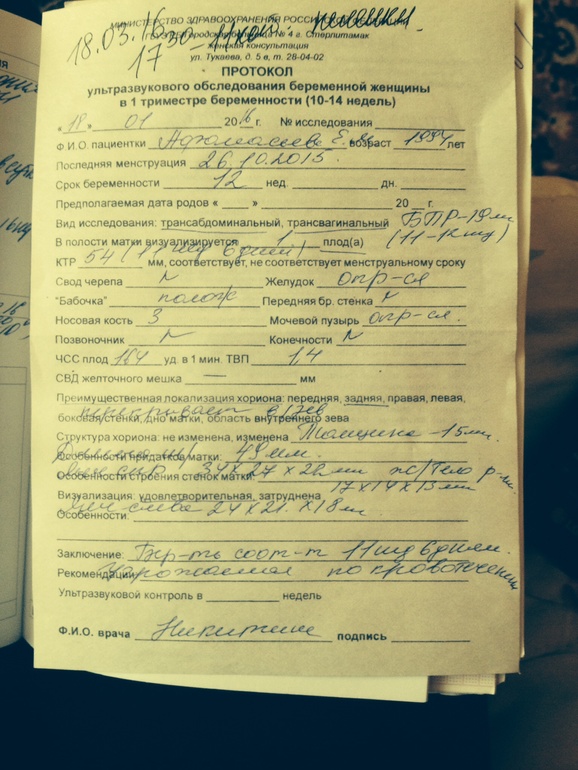 18.03.16
17 30
МИНИСТЕРСТВО ЗДРАВООХРАНЕНИЯ
Городская больница № 4 г. Стерлитамак
женская консультация
ул. Тукаева, д. 5 в, т. 28-04-02
ПРОТОКОЛ
ультразвукового обследования беременной женщины
в 1 триместре беременности (10-14 недель)
« 18 » 01 2016 г. № исследования
Ф.И.О. пациентки Е. возраст 1994 лет
Последняя менструация 26.10.2015.
Срок беременности 12 нед. дн.
Предполагаемая дата родов « » 20 г.
Вид исследования: трансабдоминальный, трансвагинальный БПР-19мм
В полости матки визуализируется 1 плод(а) (11-12нед)
КТР 54 (11 нед 6 дней) мм, соответствует, не соответствует менструальному сроку
Свод черепа N Желудок опр-ся
"Бабочка" полож Передняя бр. стенка N
Носовая кость 3 Мочевой пузырь опр-ся.
Позвоночник N Конечности N
ЧСС плод 164 уд. в 1 мин. ТВП 1,4
СВД желточного мешка — мм
Преимущественная локализация хориона: передняя, задняя, правая, левая,
перекрывает в/зев
боковая стенки, дно матки, область внутреннего зева
Структура хориона: не изменена, изменена Толщина -15мм.
Особенности придатков матки: 49 мм.
Особенности строения стенок матки: 34х27х22мм ж/тело
17х14х13мм
Визуализация: удовлетворительная, затруднена
слева 24х21х18мм
Особенности:
Заключение: Бер-ть соот-т 11нед 6дням.
Рекомендации: по кровотечению
Ультразвуковой контроль в недель
Ф.И.О. врача подпись